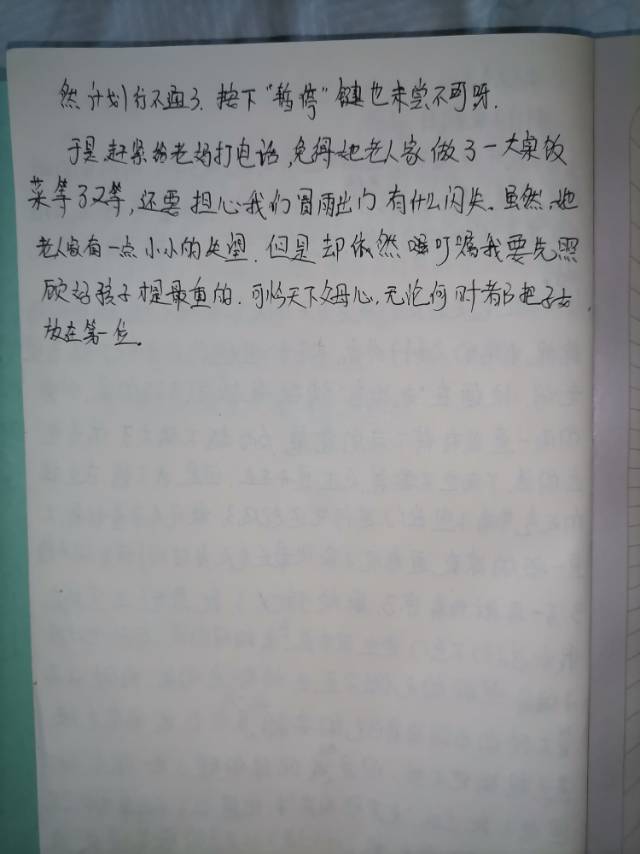 然计划行不通了.按下“暂停”键也未尝不可呀.
于是赶紧给老妈打电话,免得她老人家做了一大桌饭
菜等了又等,还要担心我们冒雨出门有什么闪失。虽然她
老人家有一点小小的失望.但是却依然叮嘱我要先照
顾好孩子才是最重的.可怜天下父母心,无论何时都把子女
放在第一位。